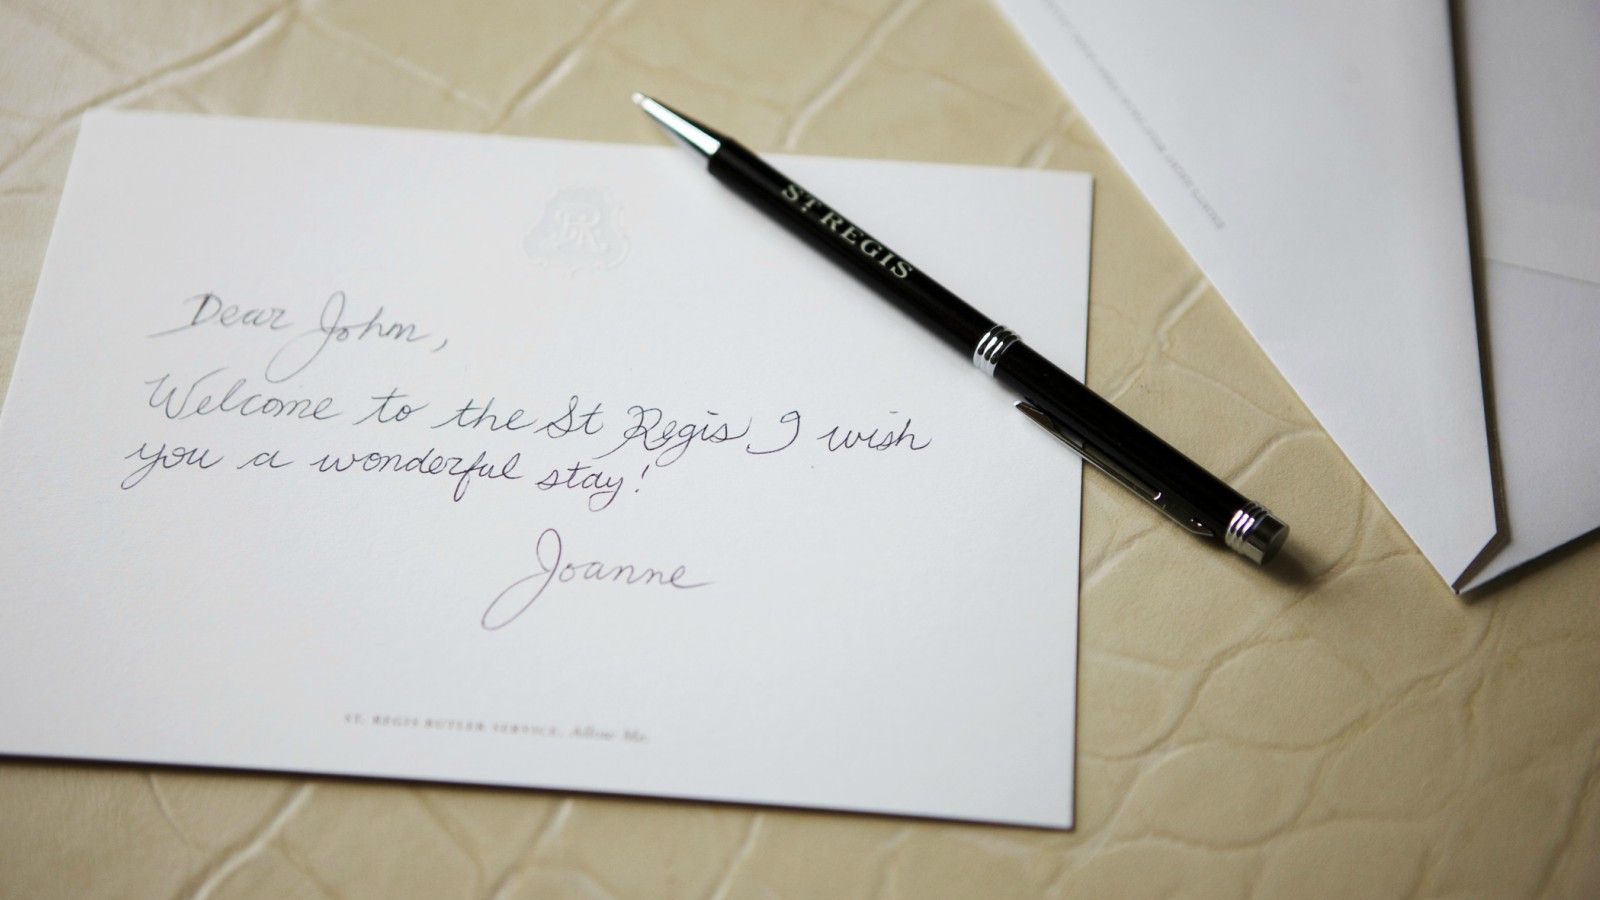 Dear John,
Welcome to the St Regis I wish
you a wonderful stay!
Joanne
ST. REGIS BUTLER SERVICE. Allow Me.
ST REGIS